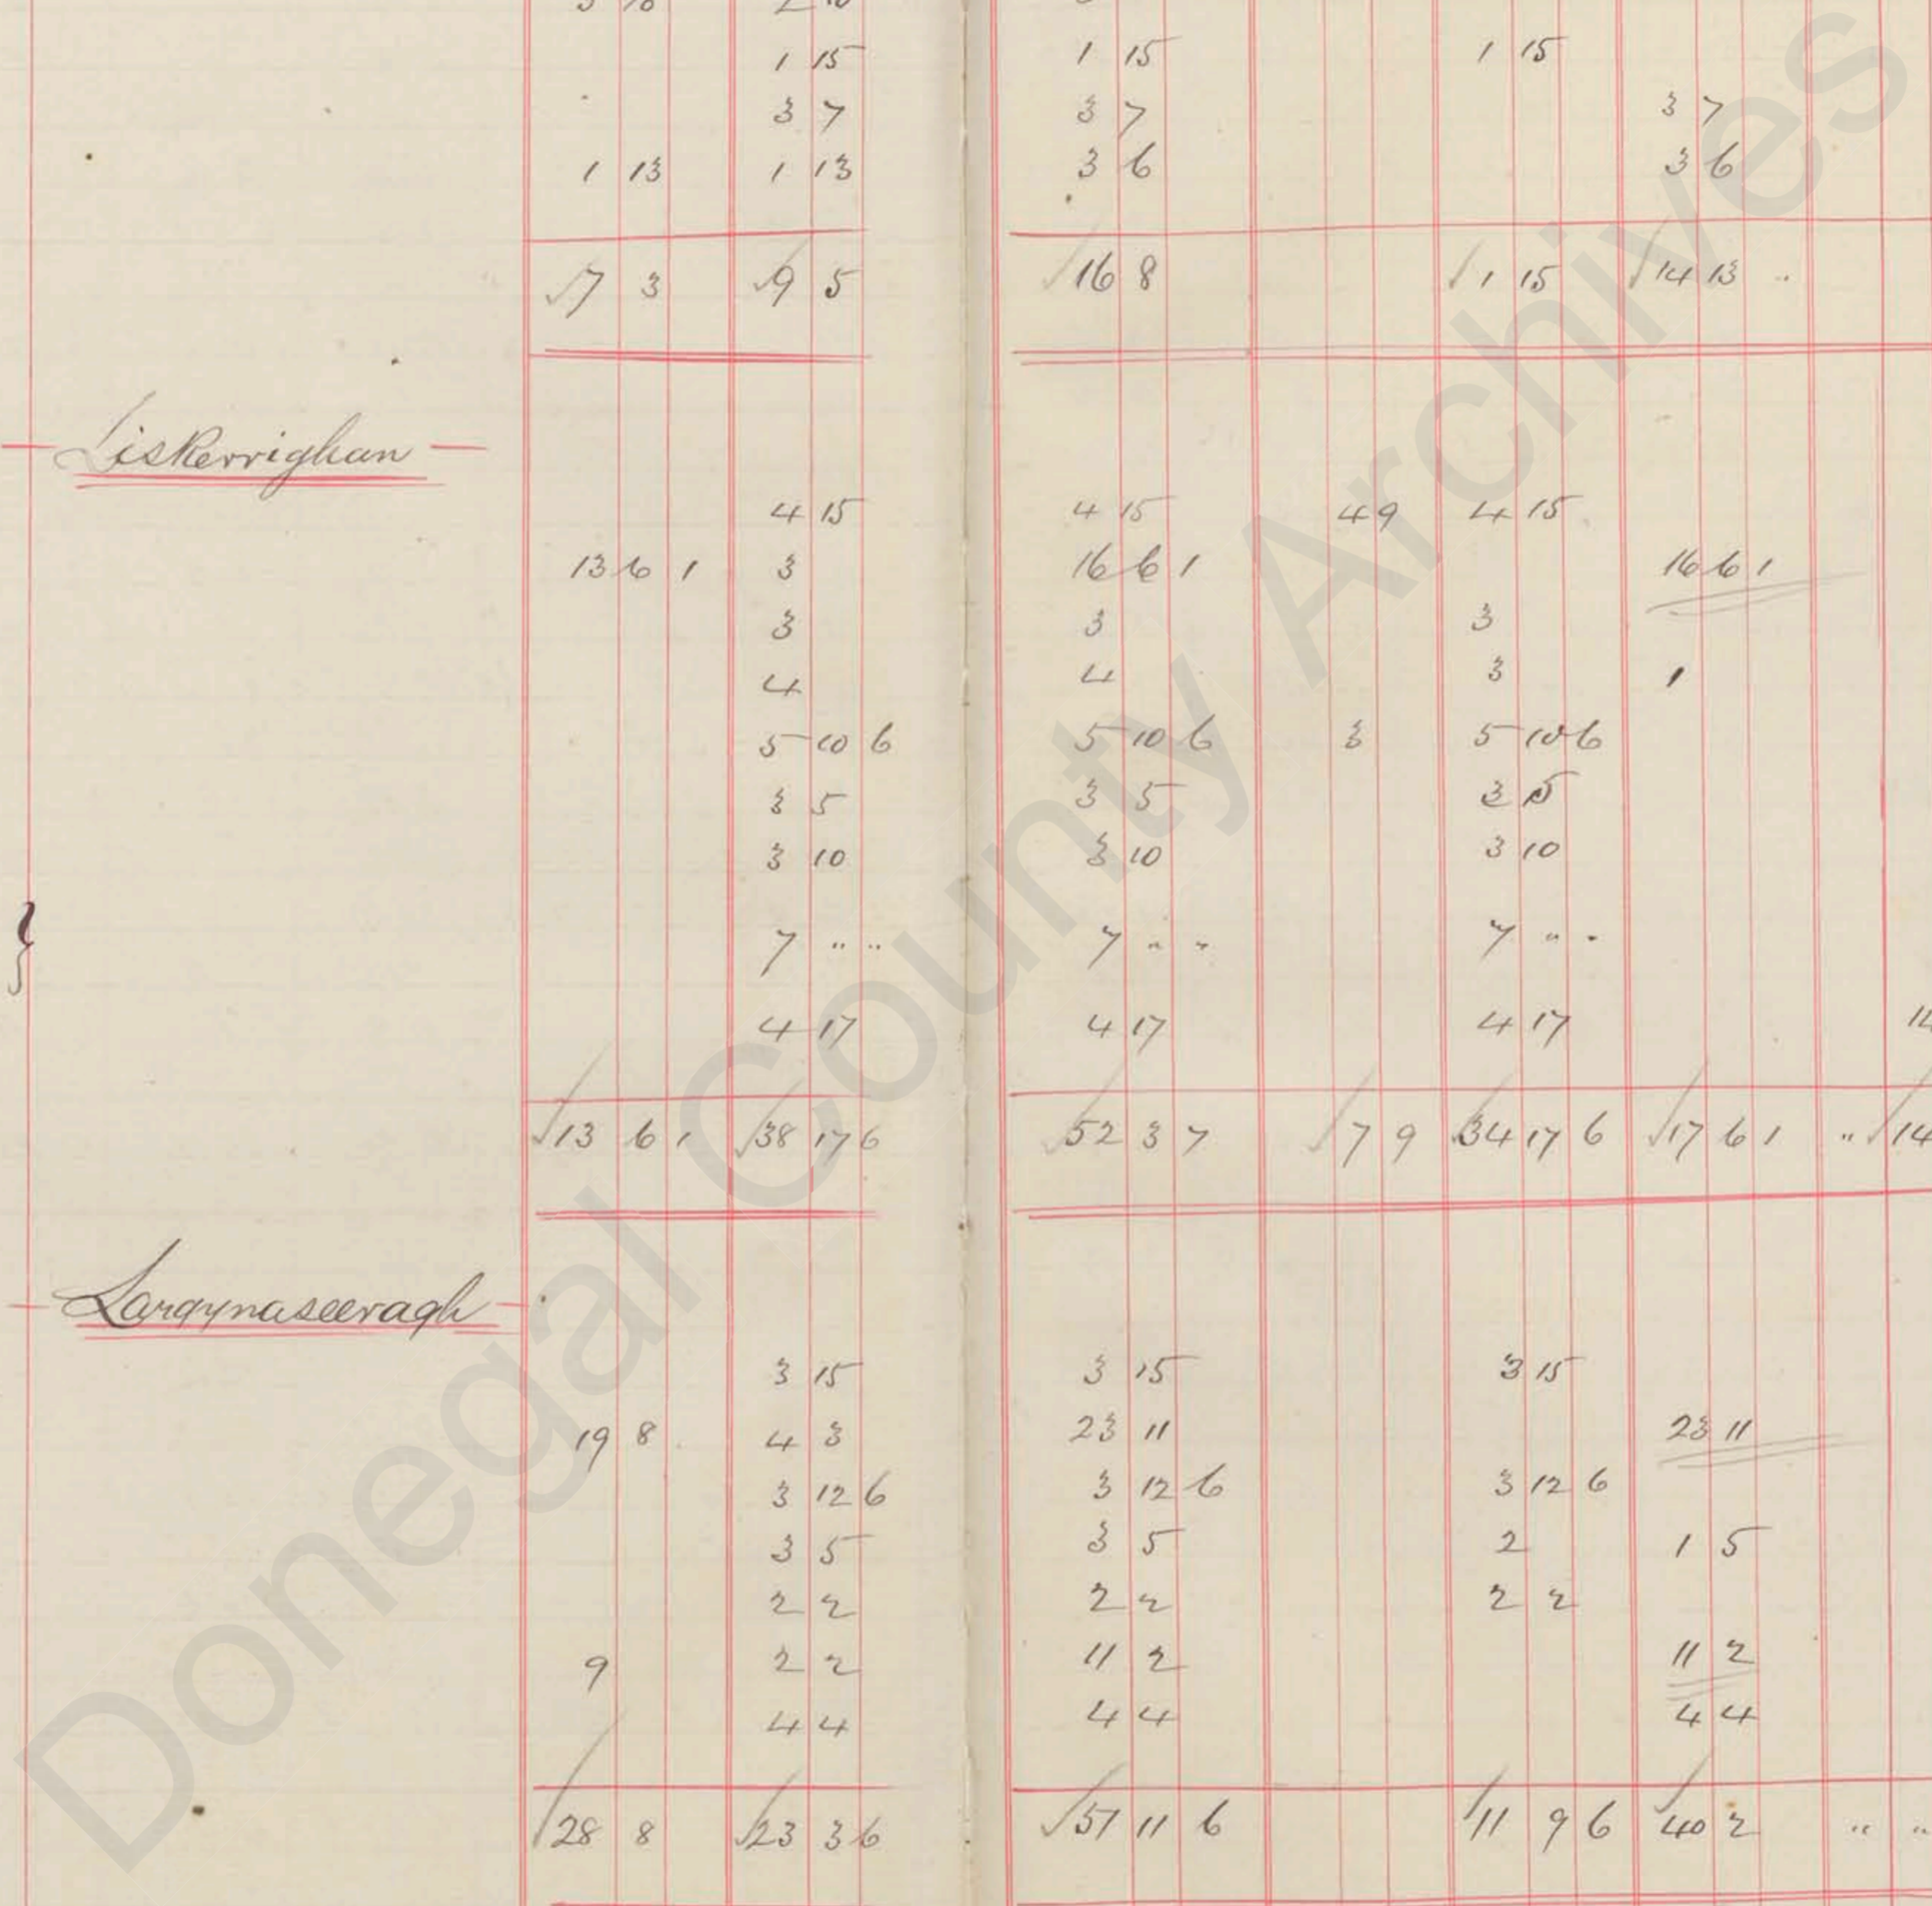 1 15 1 15 1 15
3 7 3 7 3 7
1 13 1 13 3 6 3 6
7 3 9 5 16 8 1 15 14 13 "
Liskerrighan
4 15 4 15 4 9 4 15
13 6 1 3 16 6 1 16 6 1
3 3 3
4 4 3 1
5 10 6 5 10 6 3 5 10 6
3 5 3 5 3 5
3 10 3 10 3 10
7 " " 7 " " 7 " "
4 17 4 17 4 17 14
13 6 1 38 17 6 52 3 7 7 9 34 17 6 17 6 1 " 14
Largynaseeragh
3 15 3 15 3 15
19 8 4 3 23 11 23 11
3 12 6 3 12 6 3 12 6
3 5 3 5 2 1 5
2 2 2 2 2 2
9 2 2 11 2 11 2
4 4 4 4 4 4
28 8 23 3 6 51 11 6 11 9 6 40 2 " "
Donegal County Archives